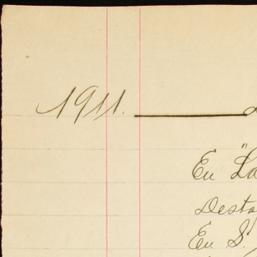 1911.
En "La
Desta
En S.